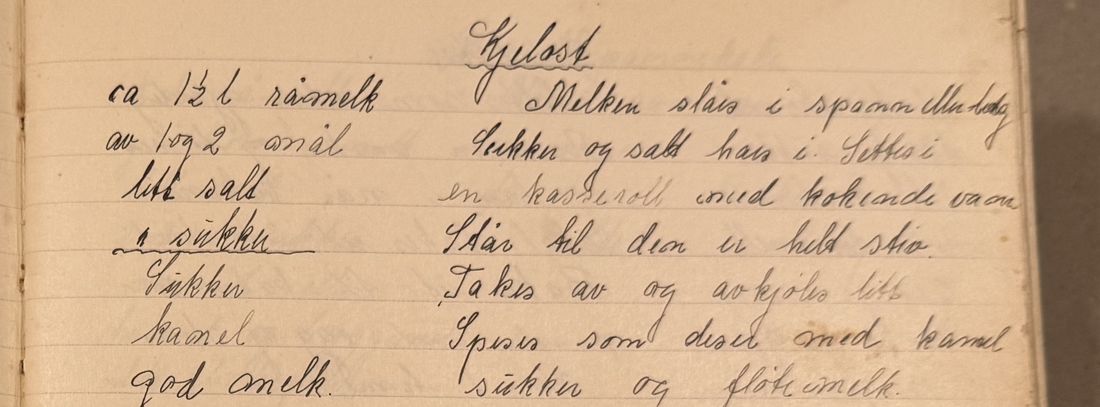 Kjelost
ca 1½ l råmelk
av 1 og 2 mål
litt salt
" sukker
Sukker
kanel
god melk.
Melken slåes i spann eller
Sukker og salt haes i. Settes i
en kasseroll med kokende vann
Står til den er helt stiv.
Takes av og avkjøles litt
Spises som deser med kanel
sukker og fløtemelk.